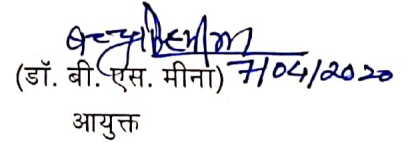 (डॉ. बी. एस. मीना) 7/04/2020
आयुक्त